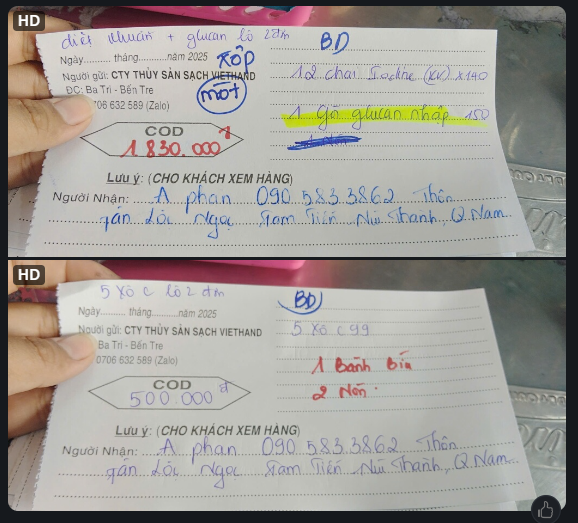 HD
diệt khuẩn + glucan lô 2 đm
BD
Ngày.......... tháng..........năm 2025 xốp
Người gửi: CTY THỦY SẢN SẠCH VIETHAND
12 chai Iodine (KV) x 140
ĐC: Ba Tri - Bến Tre
một
706 632 589 (Zalo)
1 gói glucan nhập 150
COD
1.830.000đ
Lưu ý: (CHO KHÁCH XEM HÀNG)
Người Nhận: A phan 090 583 3862 Thôn
Tân Lộc Ngọc Tam Tiến Núi Thành, Q Nam
HD
5 xô c lô 2 đm
BD
Ngày.......... tháng..........năm 2025
Người gửi: CTY THỦY SẢN SẠCH VIETHAND
5 xô c 99
Ba Tri - Bến Tre
0706 632 589 (Zalo)
1 Bánh Bía
2 Nón
COD
500.000đ
Lưu ý: (CHO KHÁCH XEM HÀNG)
Người Nhận: A phan 090 583 3862 Thôn
Tân Lộc Ngọc Tam Tiến Núi Thành, Q Nam